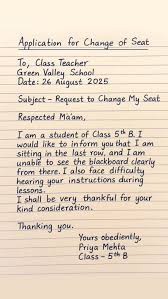 Application for Change of Seat
To, Class Teacher
Green Valley School
Date: 26 August 2025
Subject - Request to Change My Seat
Respected Ma'am,
I am a student of Class 5th B. I
would like to inform you that I am
sitting in the last row, and I am
unable to see the blackboard clearly
from there. I also face difficulty
hearing your instructions during
lessons.
I shall be very thankful for your
kind consideration.
Thanking you.
Yours obediently,
Priya Mehta
Class - 5th B